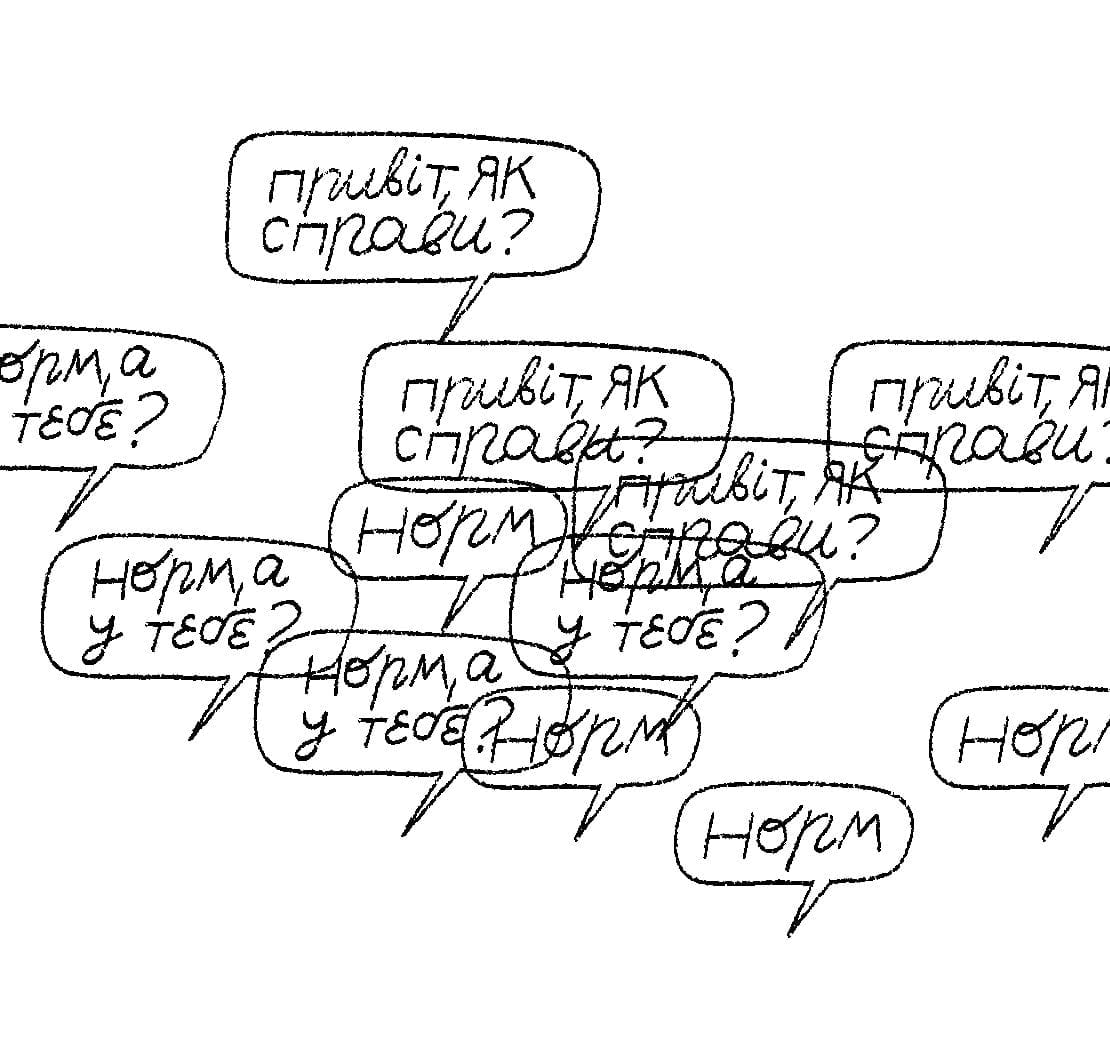 привіт, як
справи?
орм, а
тебе?
привіт, як
справи?
привіт, як
справи?
привіт, як
справи?
норм
норм, а
у тебе?
норм, а
у тебе?
норм, а
у тебе?
норм
норм
норм